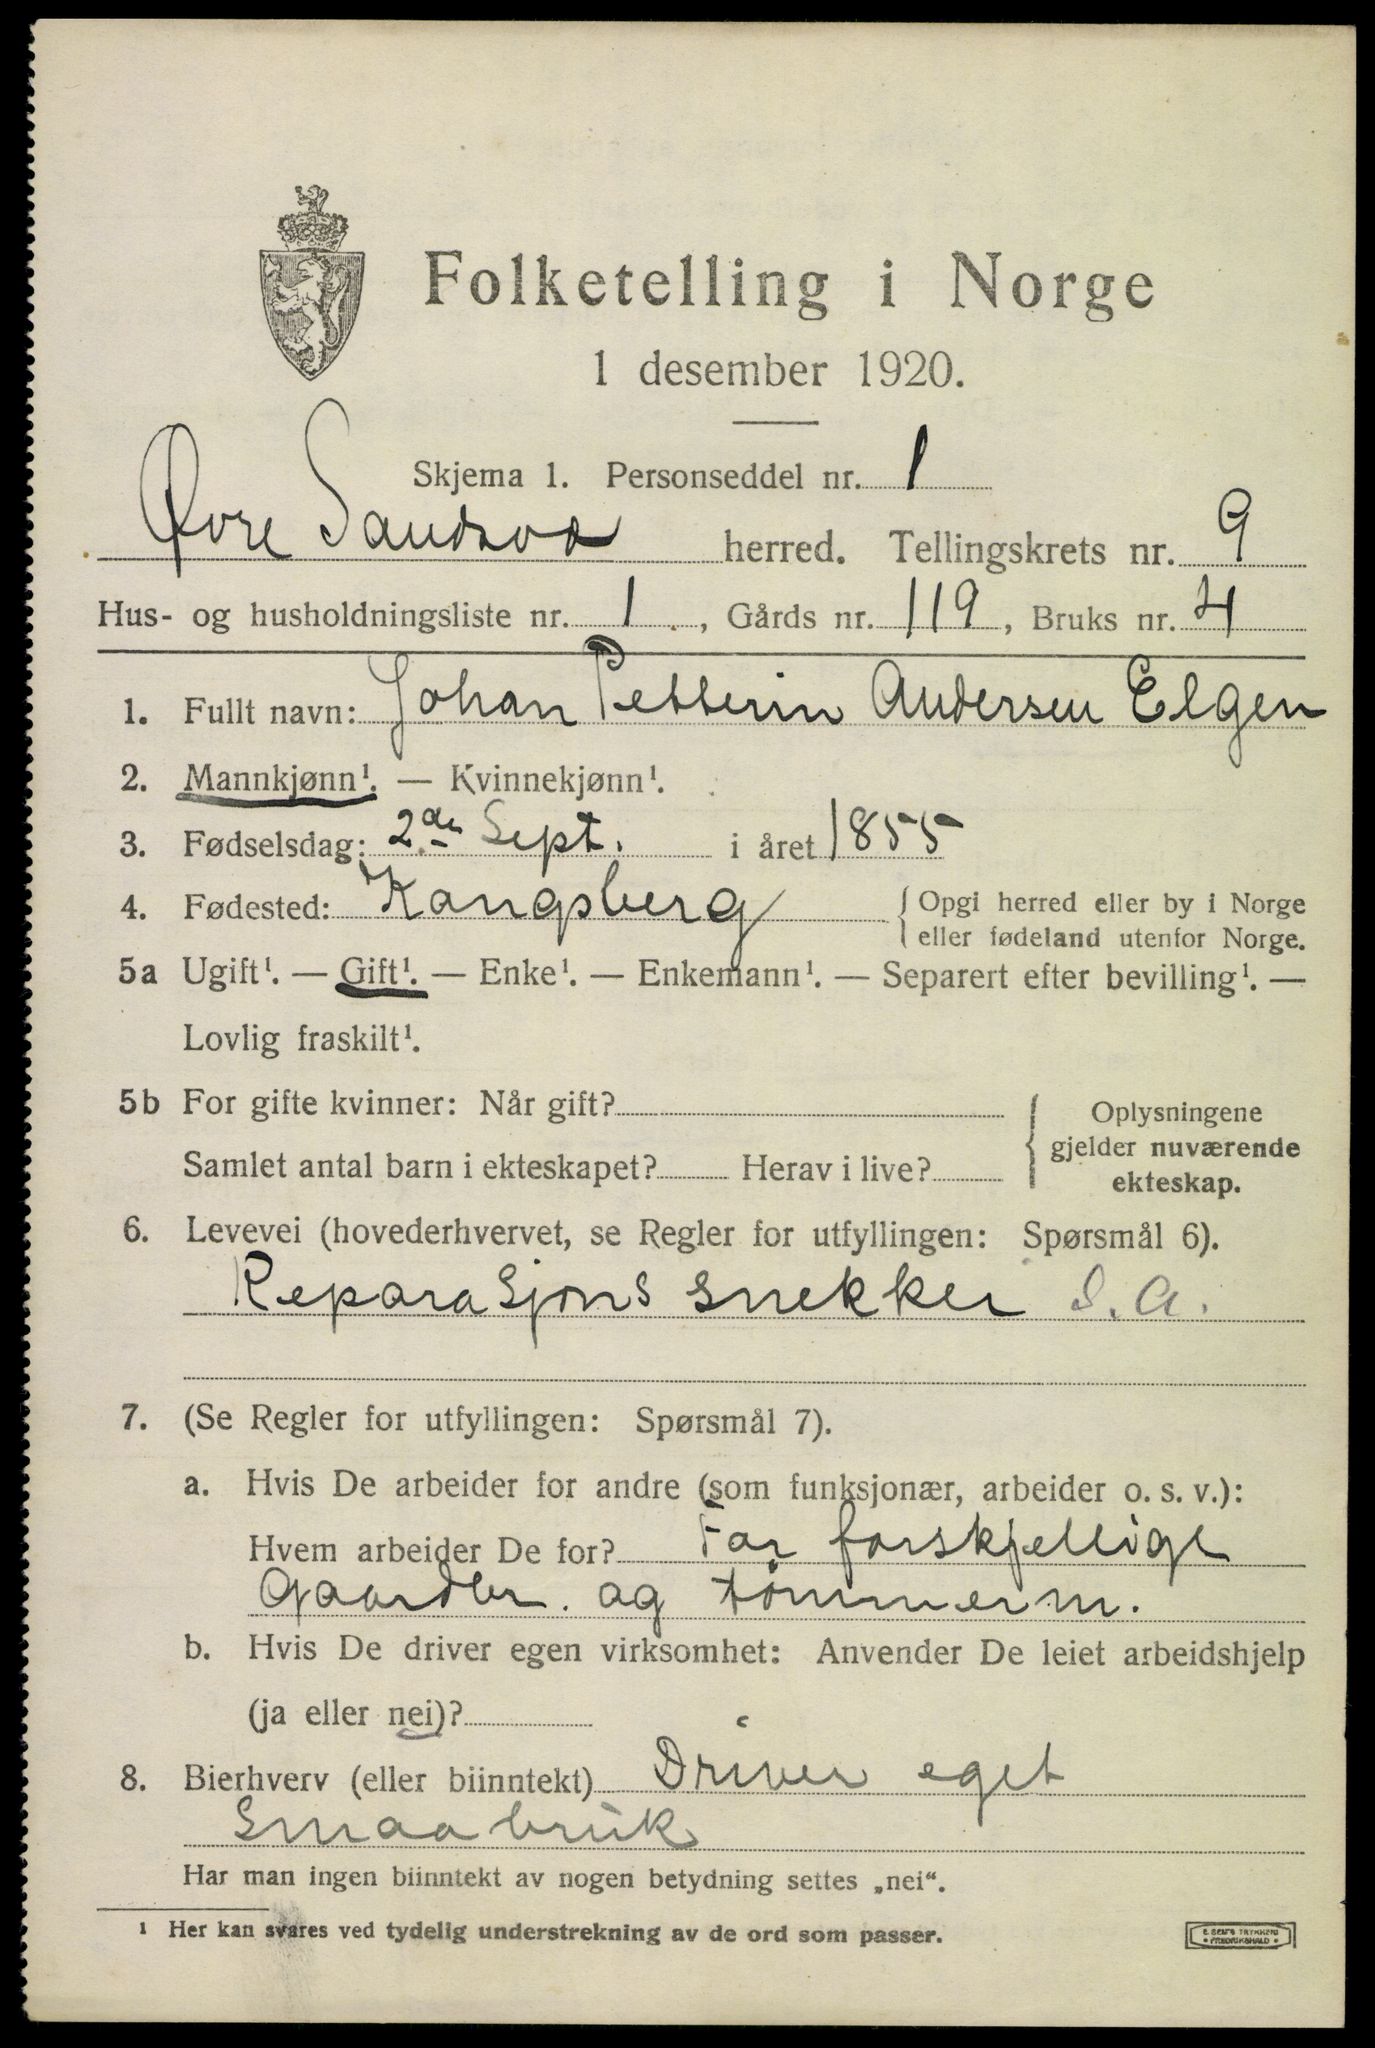 Folketelling i Norge
1 desember 1920.
Skjema 1. Personseddel nr. 1
Øvre Sandsvær herred. Tellingskrets nr. 9
Hus- og husholdningsliste nr. 1, Gårds nr. 119, Bruks nr. 4
1. Fullt navn: Johan Petterin Andersen Elgen
2. Mannkjønn¹. — Kvinnekjønn¹.
3. Fødselsdag: 2den Sept. i året 1855
4. Fødested: Kongsberg { Opgi herred eller by i Norge
eller fødeland utenfor Norge.
5a Ugift¹. — Gift¹. — Enke¹. — Enkemann¹. — Separert efter bevilling¹. —
Lovlig fraskilt¹.
5b For gifte kvinner: Når gift?
Samlet antal barn i ekteskapet? Herav i live?
{ Oplysningene
gjelder nuværende
ekteskap.
6. Levevei (hovederhvervet, se Regler for utfyllingen: Spørsmål 6).
Reparasjons snekker S. A.
7. (Se Regler for utfyllingen: Spørsmål 7).
a. Hvis De arbeider for andre (som funksjonær, arbeider o. s. v.):
Hvem arbeider De for? For forskjellige
Gaardbr. og tömmerm.
b. Hvis De driver egen virksomhet: Anvender De leiet arbeidshjelp
(ja eller nei)?
8. Bierhverv (eller biinntekt) Driver eget
Smaabruk
Har man ingen biinntekt av nogen betydning settes „nei“.
¹ Her kan svares ved tydelig understrekning av de ord som passer.
E. SEM'S TRYKKERI
• FREDRIKSHALD •